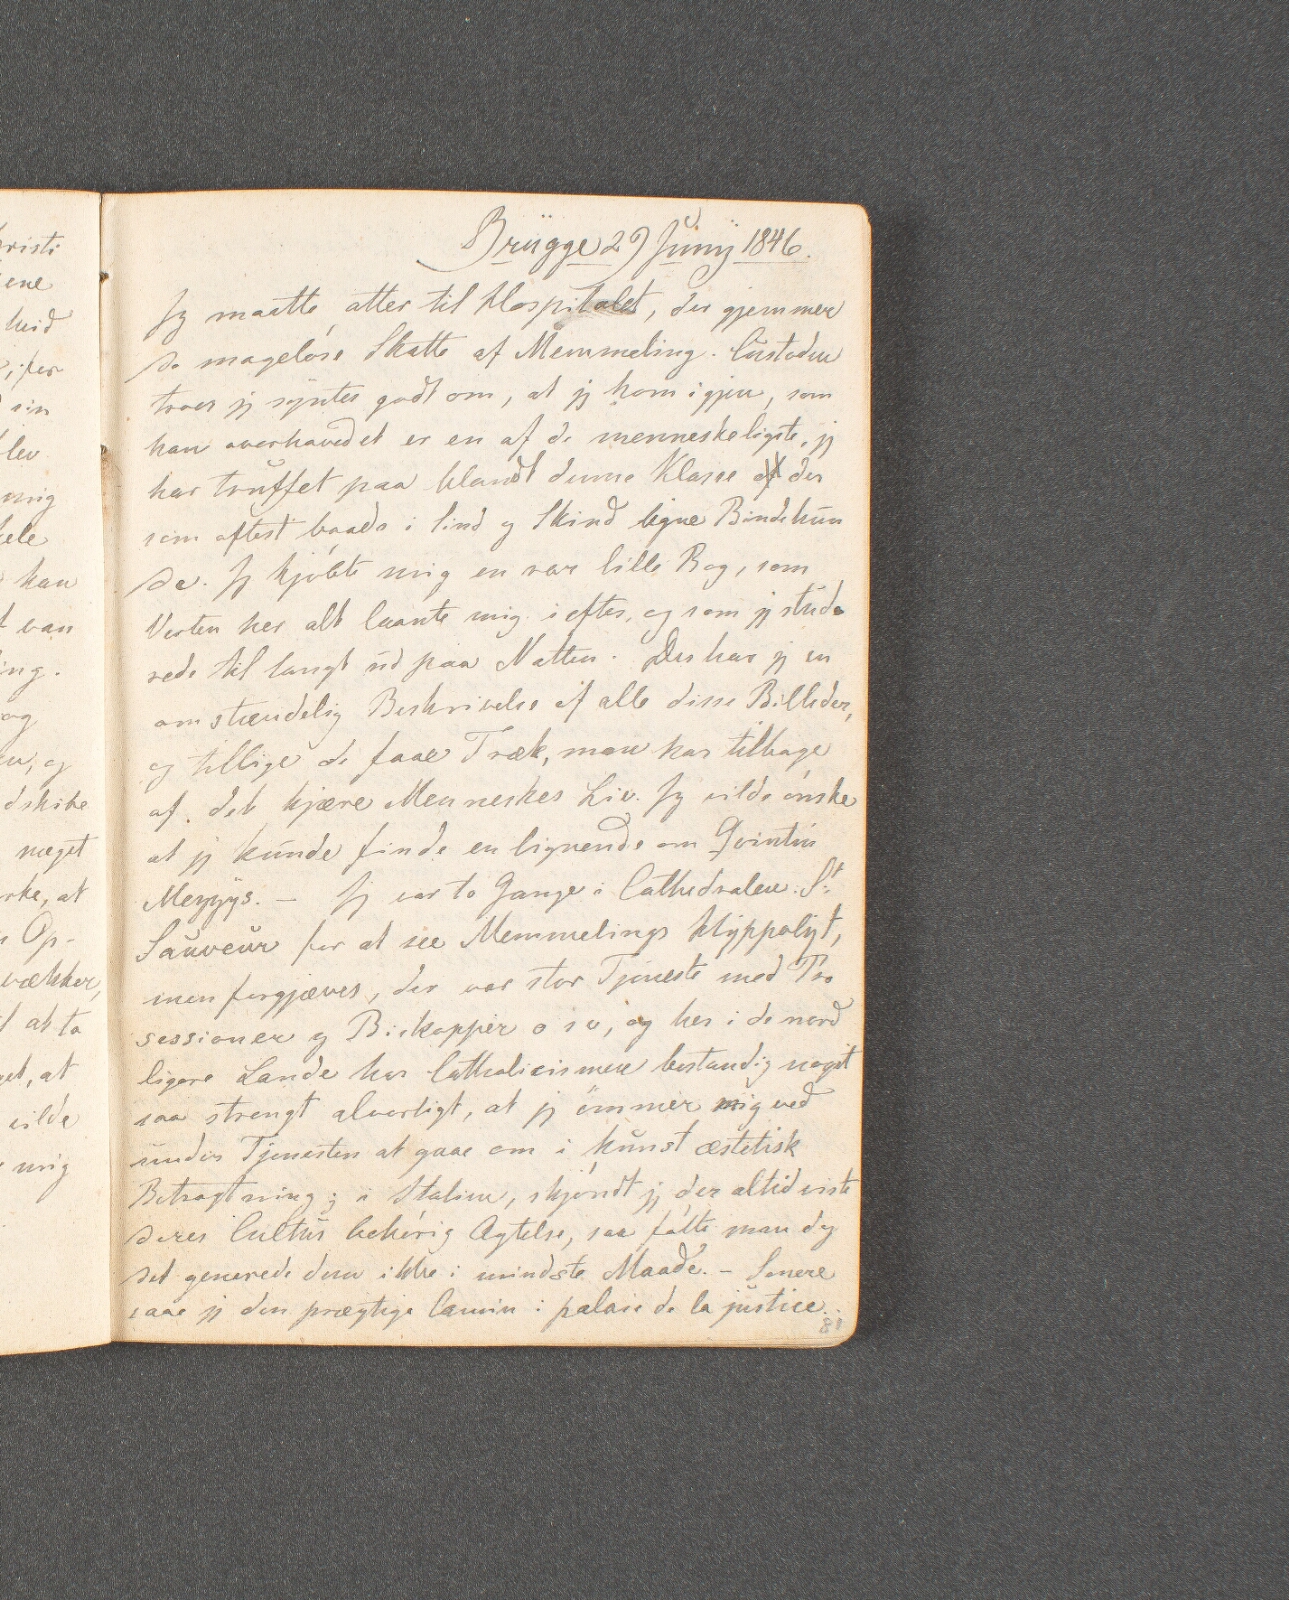 Brügge 29 Junij 1846.
Jg maatte atter til Hospitalet, der gjemmer
de mageløse Skatte af Memmeling. Custoden
troer jg syntes godt om, at jg kom igjen, som
han overhovedet er en af de menneskeligste, jg
har truffet paa blandt denne Klasse af der
som oftest baade i Sind og Skind ligne Bindehun
de. Jg kjøbte mig en rar lille Bog, som
Verten her alt laante mig i aftes, og som jg stude
rede til langt ud paa Natten. Der har jg en
omstændelig Beskrivelse af alle disse Billeder,
og tillige de faae Træk, man har tilbage
af det kjære Menneskes Liv. Jg vilde ønske
at jg kunde finde en lignende om Qvintin
Messys. – Jg var to Gange i Cathedralen St.
Sauveur for at see Memmelings Hyppolyt,
men forgjæves, der var stor Tjeneste med Pro
sessioner og Biskopper o s v, og her i de nord
ligere Lande har Catholicismen bestandig noget
saa strengt alvorligt, at jg ømmer mig ved
under Tjenesten at gaae om i kunst æstetisk
Betragtning; i Italien, skjøndt jg der altid viste
deres Cultus behørig Agtelse, saa følte man dog
det generede dem ikke i mindste Maade. – Senere
saae jg den prægtige Camin i palais de la justice.
81
risti
ene
heid
for
sin
blev
mig
hele
han
van
ing.
og
en, og
dskibe
noget
rke, at
Op-
vækker,
at to
get, at
vilde
mig